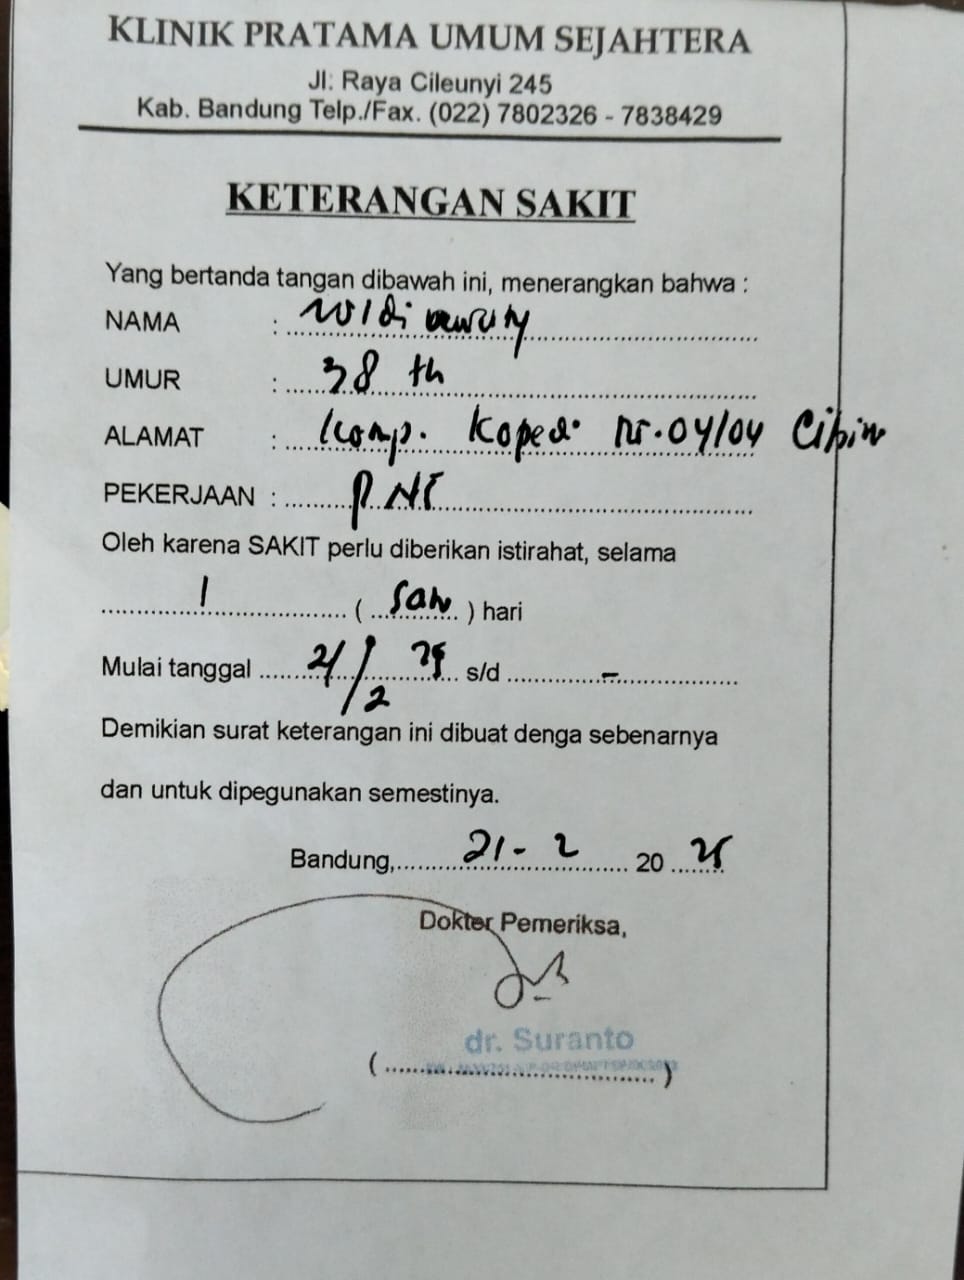 KLINIK PRATAMA UMUM SEJAHTERA
Jl. Raya Cileunyi 245
Kab. Bandung Telp./Fax. (022) 7802326 - 7838429
KETERANGAN SAKIT
Yang bertanda tangan dibawah ini, menerangkan bahwa :
NAMA :
UMUR : 38 th
ALAMAT : Komp. Kopea. nr.04/04
PEKERJAAN :
Oleh karena SAKIT perlu diberikan istirahat, selama
1 ( Satu ) hari
Mulai tanggal 21/2 25 s/d -
Demikian surat keterangan ini dibuat denga sebenarnya
dan untuk dipegunakan semestinya.
Bandung, 21 - 2 20 25
Dokter Pemeriksa,
dr. Suranto
(                    )